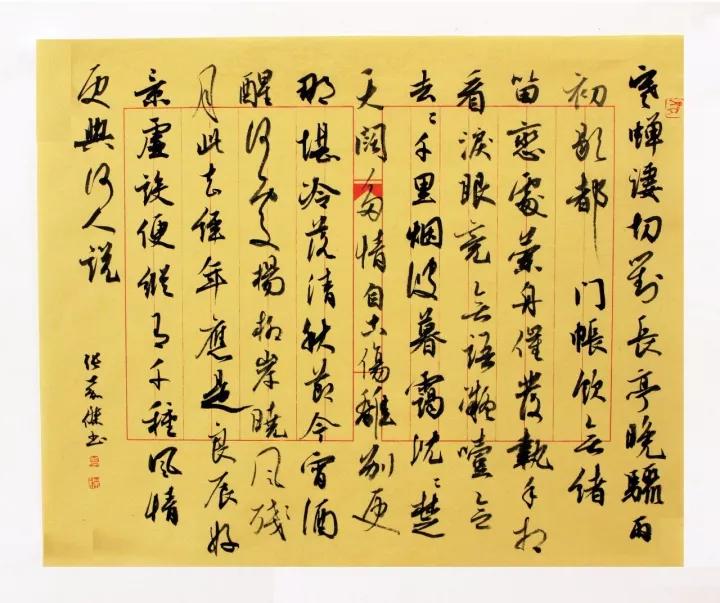 寒蟬淒切對長亭晚驟雨
初歇都門帳飲无緒
留戀處蘭舟催發執手相
看淚眼竟无語凝噎念
去〻千里烟波暮靄沈〻楚
天闊多情自古傷離別更
那堪冷落清秋節今宵酒
醒何處楊柳岸曉風殘
月此去經年應是良辰好
景虛設便縱有千種風情
更與何人說
傑书